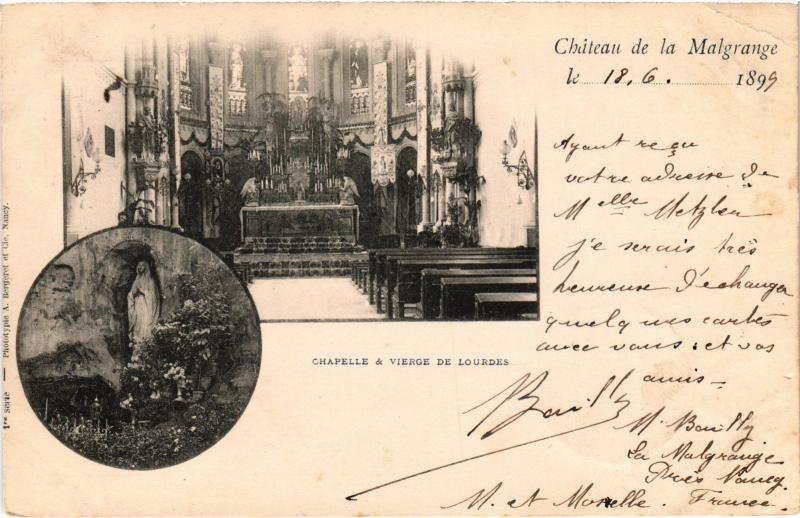 Château de la Malgrange
le 18.6. 1899
Ayant reçu
votre adresse de
Melle Metzler
je serais très
heureuse d'échanger
quelques cartes
avec vous et vos
amis -
M. Bouilly
La Malgrange
Près Nancy.
M. et Moselle. France.
CHAPELLE & VIERGE DE LOURDES
1re série — Phototypie A. Bergeret et Cie, Nancy.